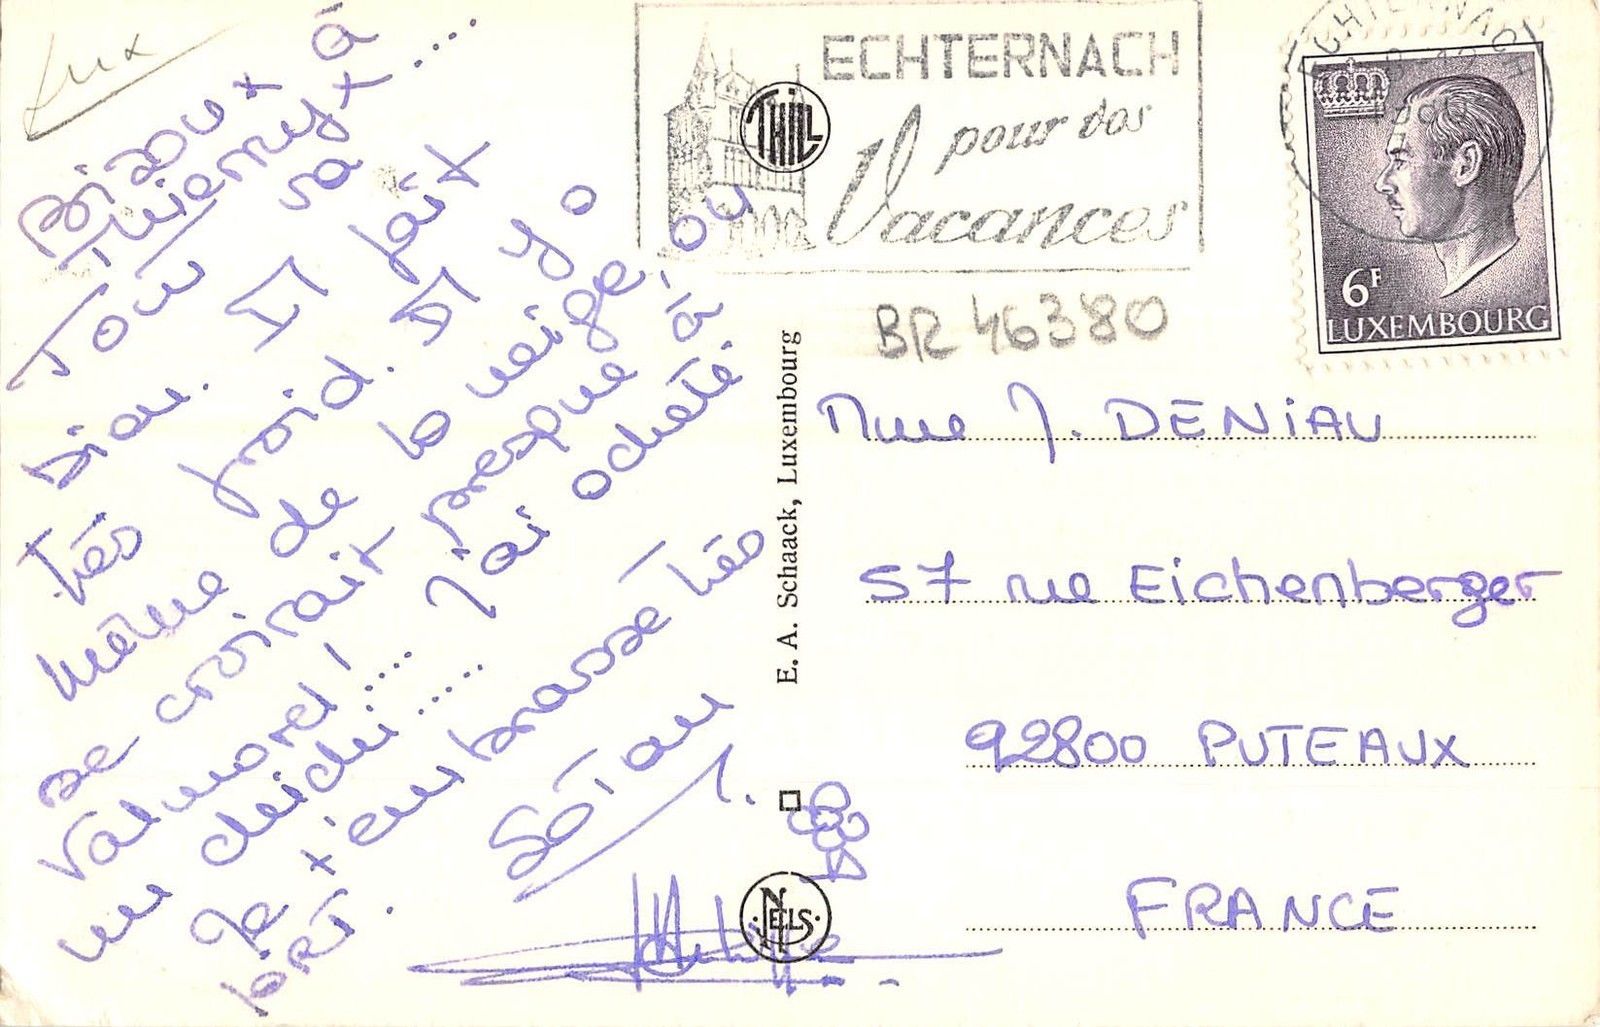 Lux
Bizoux à
Thierry x
Tout va
bien. Il fait
très froid. Il y a
même de la neige
se croirait presque à ou
Valmorel ! J'ai acheté
un dirdir
Je t'embrasse très
fort.
ECHTERNACH
pour vos
Vacances
THILL
ECHTERNACH
6F
LUXEMBOURG
BR 46380
E. A. Schaack, Luxembourg
Mme J. DENIAU
57 rue Eichenberger
92800 PUTEAUX
FRANCE
NELS